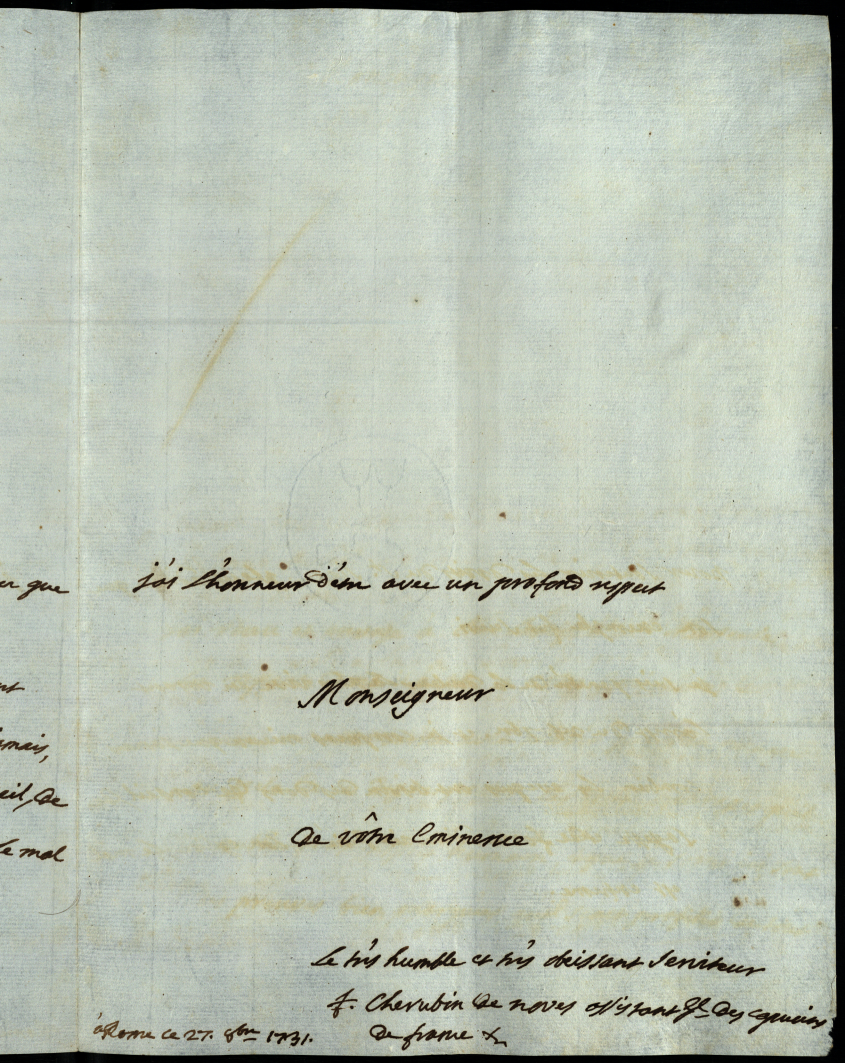 que
mais,
eil, de
le mal
j'ai l'honneur d'être avec un profond respect
Monseigneur
De vôtre Eminence
le très humble et très obeissant serviteur
f. Cherubin de noves assistant gl. des capucins
à Rome ce 27. 8bre 1731. de france